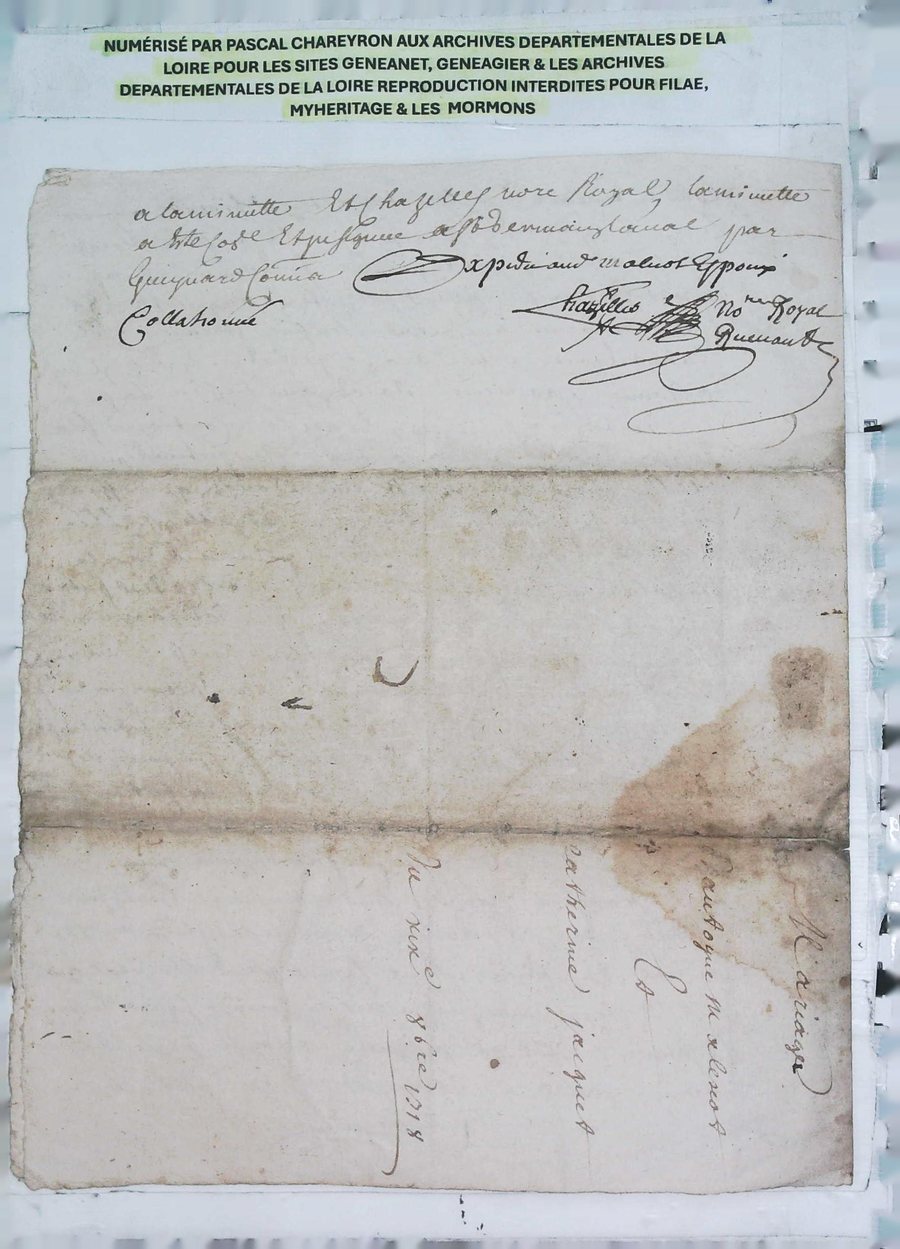 NUMÉRISÉ PAR PASCAL CHAREYRON AUX ARCHIVES DEPARTEMENTALES DE LA
LOIRE POUR LES SITES GENEANET, GENEAGIER & LES ARCHIVES
DEPARTEMENTALES DE LA LOIRE REPRODUCTION INTERDITES POUR FILAE,
MYHERITAGE & LES MORMONS
a laminutte Et Chazelles nore Royal laminutte
a Germain Laual par
Guignard Comis
Expedié aud malerot Espoux
Collationné
Chazelles No Royal
Mariage
malerot
Et
catherine jacquet
Du xixe 8bre 1718